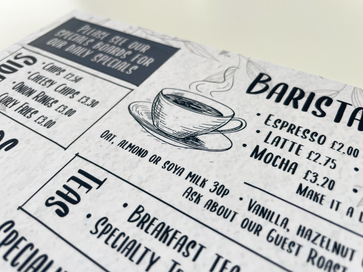 PLEASE SEE OUR
SPECIALS BOARDS FOR
OUR DAILY SPECIALS
• CHIPS £2.50
• CHEESY CHIPS £3.30
• ONION RINGS £3.00
• CURLY FRIES £3.00
BARISTA
• ESPRESSO £2.00
• LATTE £2.75
• MOCHA £3.20
MAKE IT A
OAT, ALMOND OR SOYA MILK 30p
• VANILLA, HAZELNUT
ASK ABOUT OUR GUEST ROAST
TEAS
• BREAKFAST TEA
• SPECIALTY